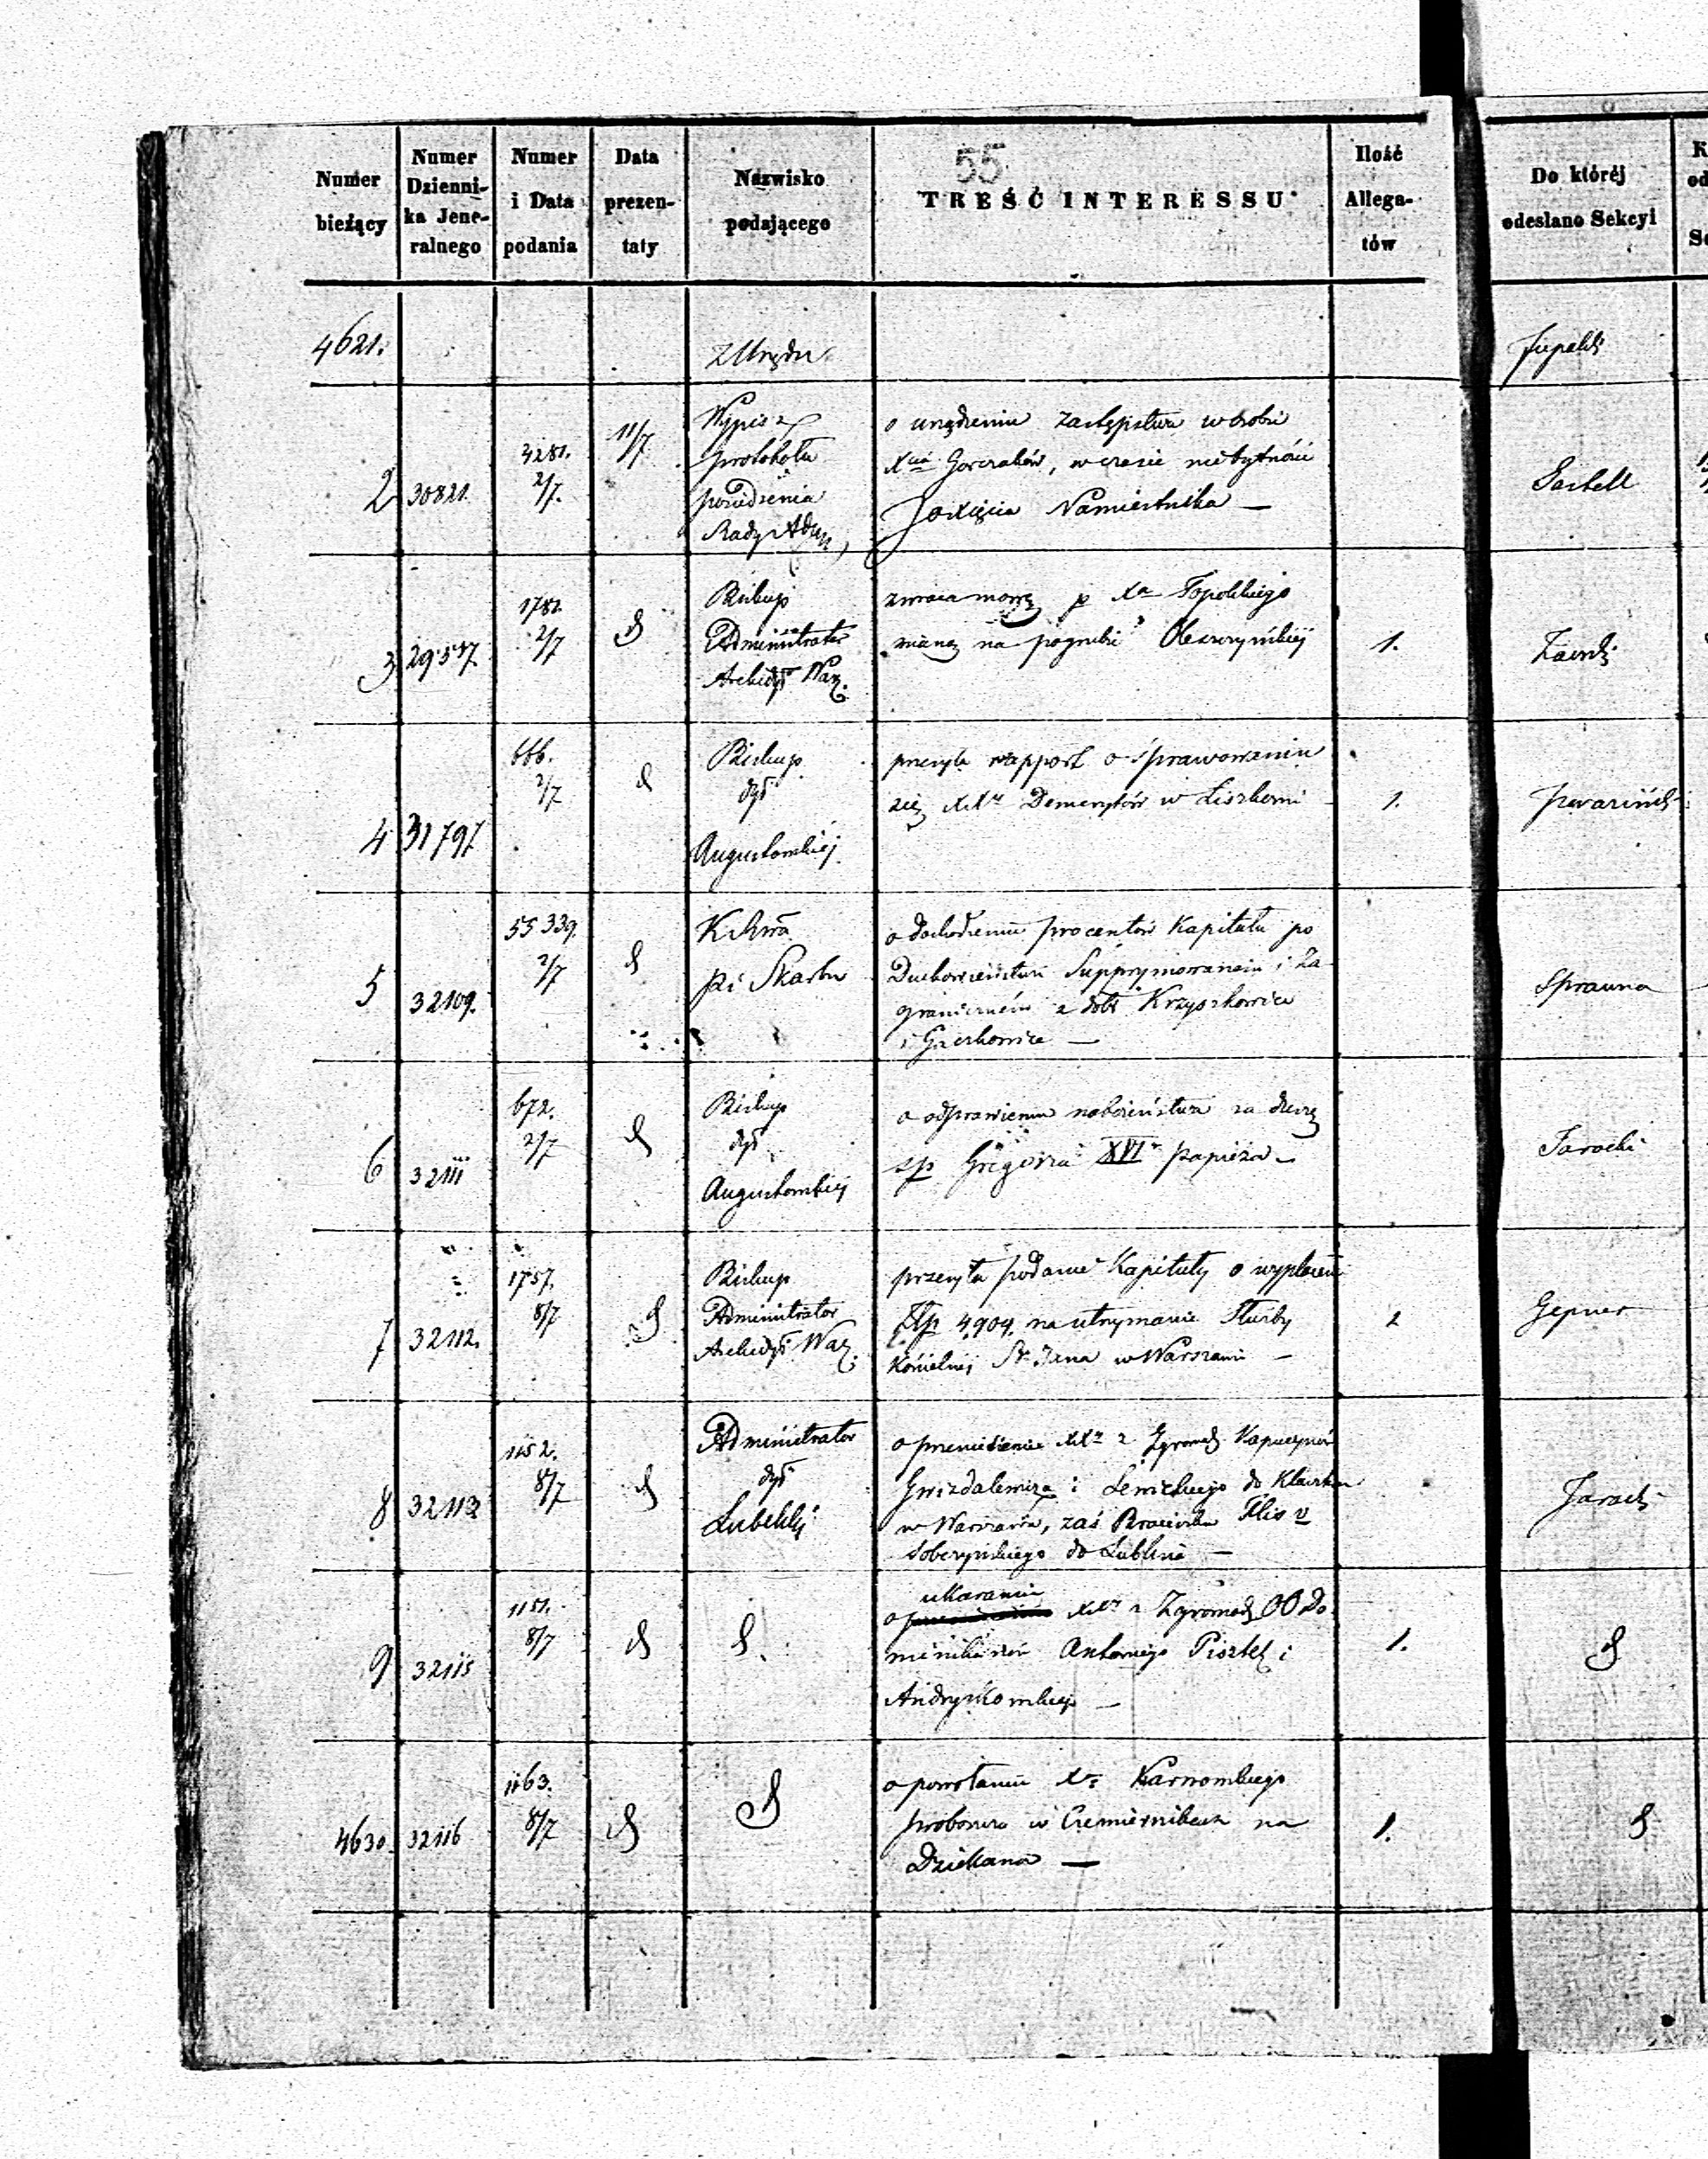 55
Numer bieżący | Numer Dzienni- ka Jene- ralnego | Numer i Data podania | Data prezen- taty | Nazwisko podającego | TREŚĆ INTERESSU | Ilość Allega- tów | Do któréj odesłano Sekcyi
4621. | z Urzędu
2 | 30821. | 3281. 2/7. | 11/7
Wypis z
protokołu
posiedzenia
Rady Adm
o urządzeniu zastępstwa w osobie
Xcia Gorczaków, w czasie niebytności
Joxięcia Namiestnika —
3 | 29537. | 1781. 2/7 | 1.
Biskup
Administrator
Archidyi Warz.
mowę p Xa Topolskiego
mianą na pogrzebie Oleszczyńskiej
4 | 31797. | 666. 2/7 | 1.
Biskup
dyi
Augustowskiéj
przesyła rapport o sprawowaniu
się XXy Demerytów w Liszkowi
5 | 32109. | 55339. 2/7 | Sprawna
pi Skarbu
o dochodzeniu procentów Kapitału po
Duchowieństwie Supprymowanem i Za-
graniczném z dóbr Krzyszkowice
i Gaczkowice —
6 | 32111 | 672. 2/7 | Jarocki
Biskup
dyi
Augustowskiej
o odprawieniu nabożeństwa za duszę
sp Grzegorza XVI papieża —
7 | 32112. | 1757. 8/7 | 2 | Gepner
Biskup
Administrator
Archidyi Warz.
przesyła podanie Kapituły o wypłacenie
Złp 4,904. na utrzymanie Służby
Kościelnéj St. Jana w Warszawie —
8 | 32113 | 1152. 8/7
Administrator
dyi
Lubelskiéj
o przeniesienie XXy z Zgromadz Kapucynów
Gwizdalewicza i Lewickiego do Klasztoru
w Warszawie, zaś Braciszka
Soberyńskiego do Lublina —
9 | 32115 | 1151. 8/7 | 1.
ukaranie
o XXy z Zgromadz OO Do-
minikanów Antoniego Pisztel i
4630. | 32116 | 1163. 8/7 | 1.
o powołaniu Xa Karnowskiego
proboszcza w Czemiernikach na
Dziekana —